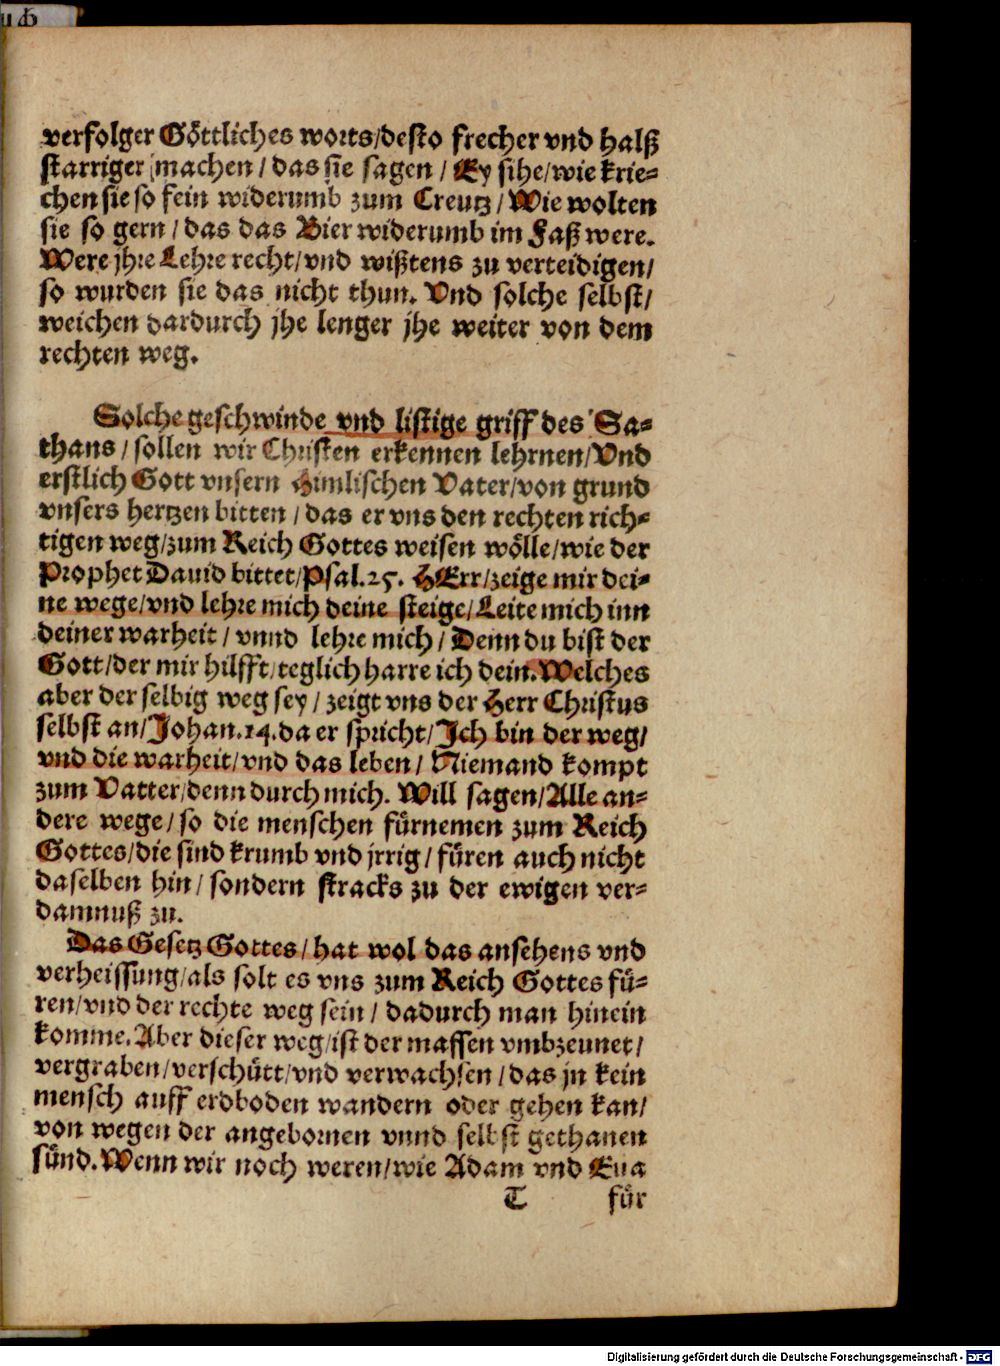 verfolger Göttliches worts/desto frecher vnd halß
starriger machen / das sie sagen / Ey sihe/wie krie-
chen sie so fein widerumb zum Creutz/Wie wolten
sie so gern / das das Bier widerumb im Faß were.
Were jhre Lehre recht/vnd wißtens zu verteidigen/
so wurden sie das nicht thun. Vnd solche selbst/
weichen dardurch jhe lenger jhe weiter von dem
rechten weg.
Solche geschwinde vnd listige griff des Sa-
thans / sollen wir Christen erkennen lehrnen/Vnd
erstlich Gott vnsern Himlischen Vater/von grund
vnsers hertzen bitten / das er vns den rechten rich-
tigen weg/zum Reich Gottes weisen wölle/wie der
Prophet Dauid bittet/Psal.25. HErr/zeige mir dei-
ne wege/vnd lehre mich deine steige/Leite mich inn
deiner warheit / vnnd lehre mich / Denn du bist der
Gott/der mir hilfft/teglich harre ich dein.Welches
aber der selbig weg sey / zeigt vns der Herr Christus
selbst an/Johan.14.da er spricht/Ich bin der weg/
vnd die warheit/vnd das leben / Niemand kompt
zum Vatter/denn durch mich. Will sagen/Alle an-
dere wege/so die menschen fürnemen zum Reich
Gottes/die sind krumb vnd jrrig/füren auch nicht
daselben hin / sondern stracks zu der ewigen ver-
damnuß zu.
Das Gesetz Gottes/hat wol das ansehens vnd
verheissung/als solt es vns zum Reich Gottes fü-
ren/vnd der rechte weg sein / dadurch man hinein
komme.Aber dieser weg/ist der massen vmbzeunet/
vergraben/verschütt/vnd verwachsen/das jn kein
mensch auff erdboden wandern oder gehen kan/
von wegen der angebornen vnnd selbst gethanen
sünd.Wenn wir noch weren/wie Adam vnd Eua
T für
Digitalisierung gefördert durch die Deutsche Forschungsgemeinschaft - DFG